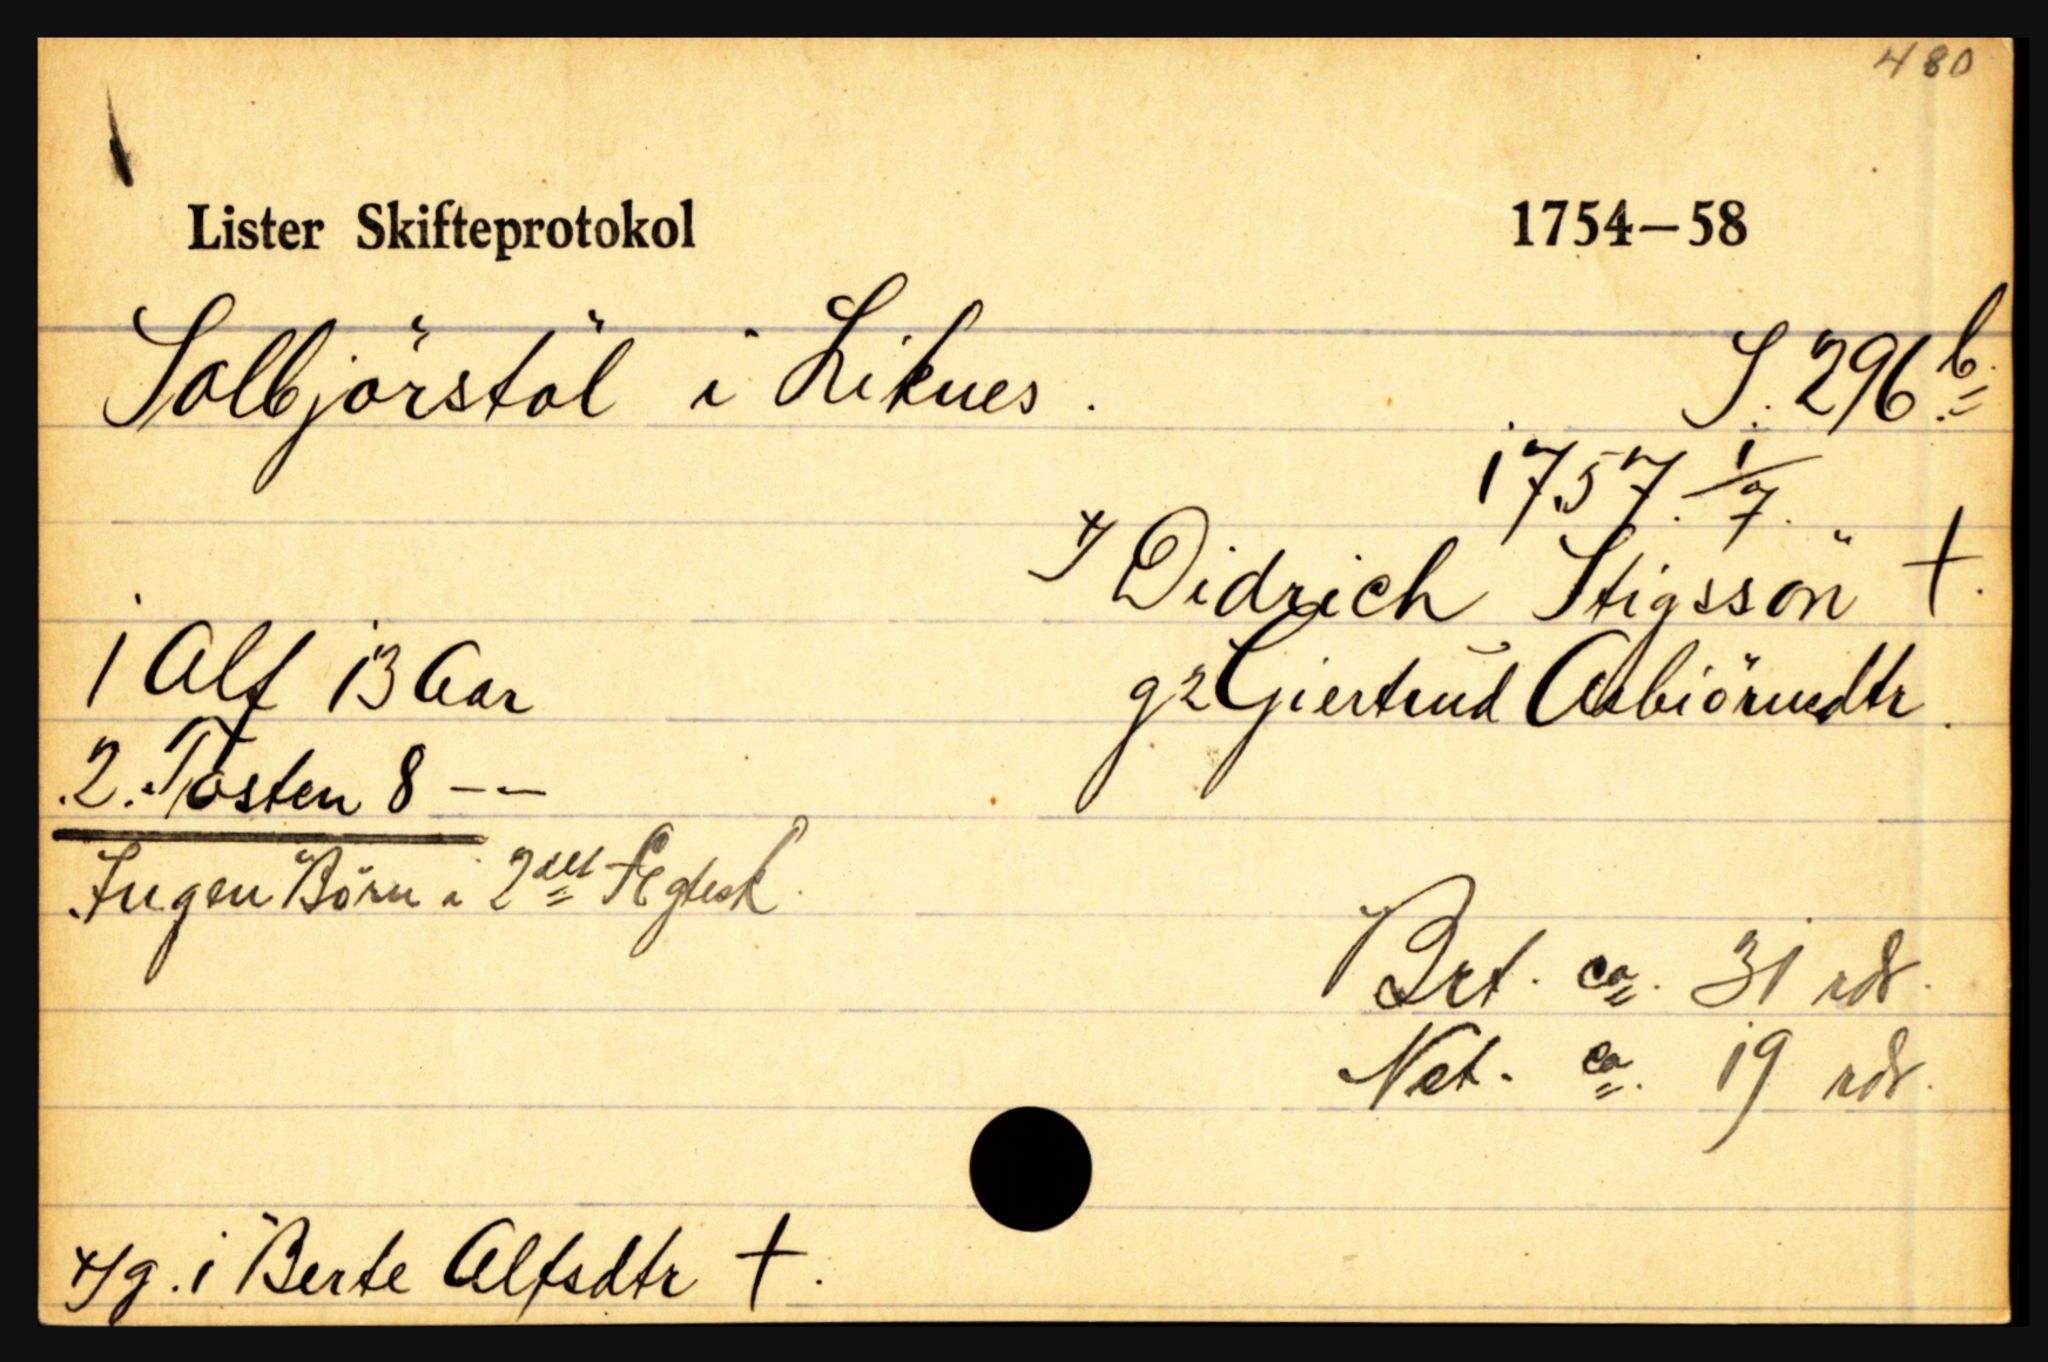 480
Lister Skifteprotokol 1754—58
Solbjörstöl i Liknes. S. 296 b.
1757. 1/7.
x/ Didrich Stigssön †.
g 2 Giertrud Asbiörnsdtr.
1 Alf 13 Aar
2. Tosten 8 – –
Ingen Börn i 2det Ægtesk.
Brt. ca. 31 rdr.
Net. ca. 19 rdr.
x/ g. 1 Berte Alfsdtr †.